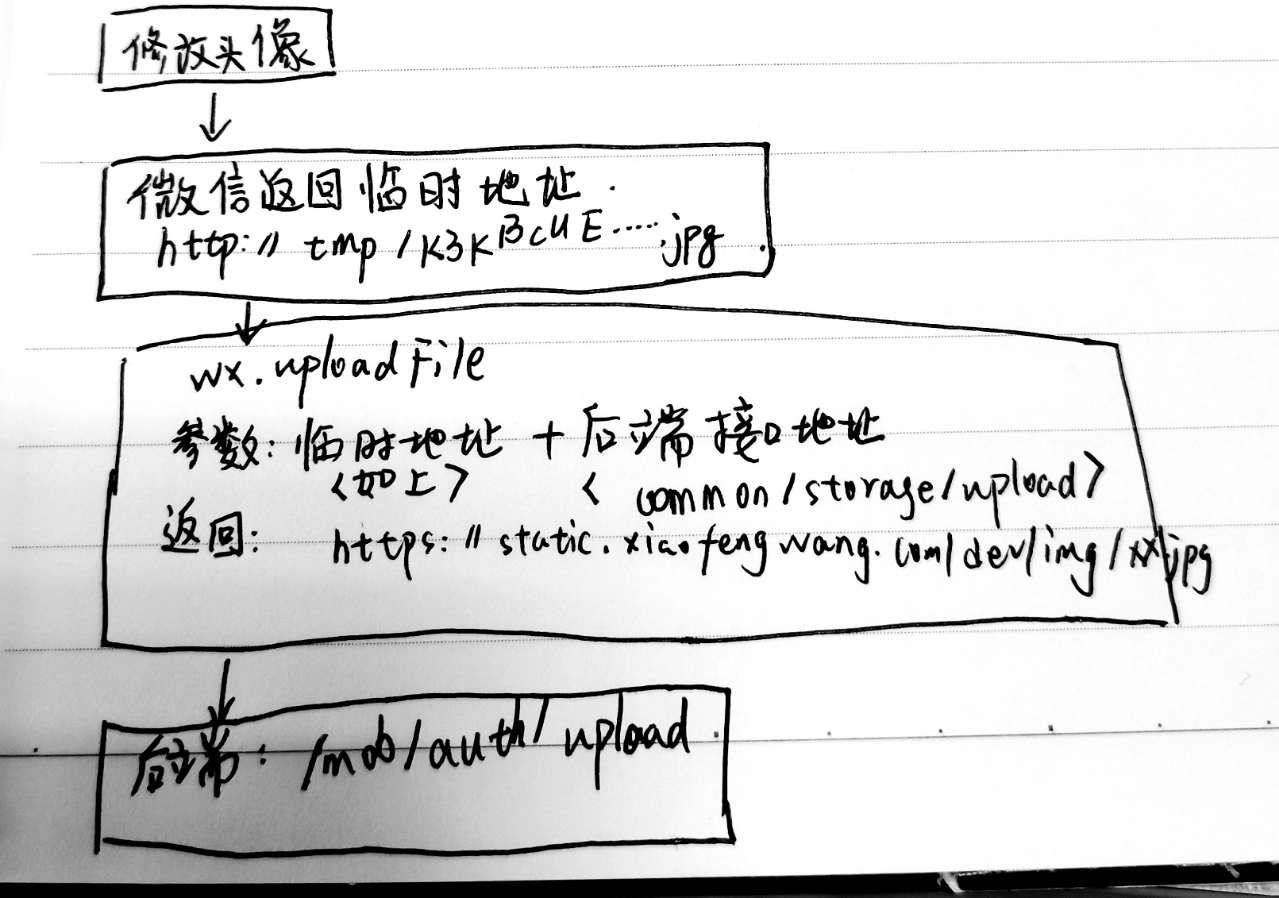 修改头像
微信返回临时地址.
http://tmp/K3KBCUE.....jpg
wx.uploadFile
参数:临时地址+后端接口地址
<如上> <common/storage/upload>
返回: https://static.xiaofengwang.com/dev/img/xx.jpg
后端:/mob/auth/upload